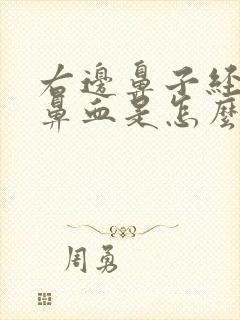 右邊鼻子経
鼻血是怎麼
周勇